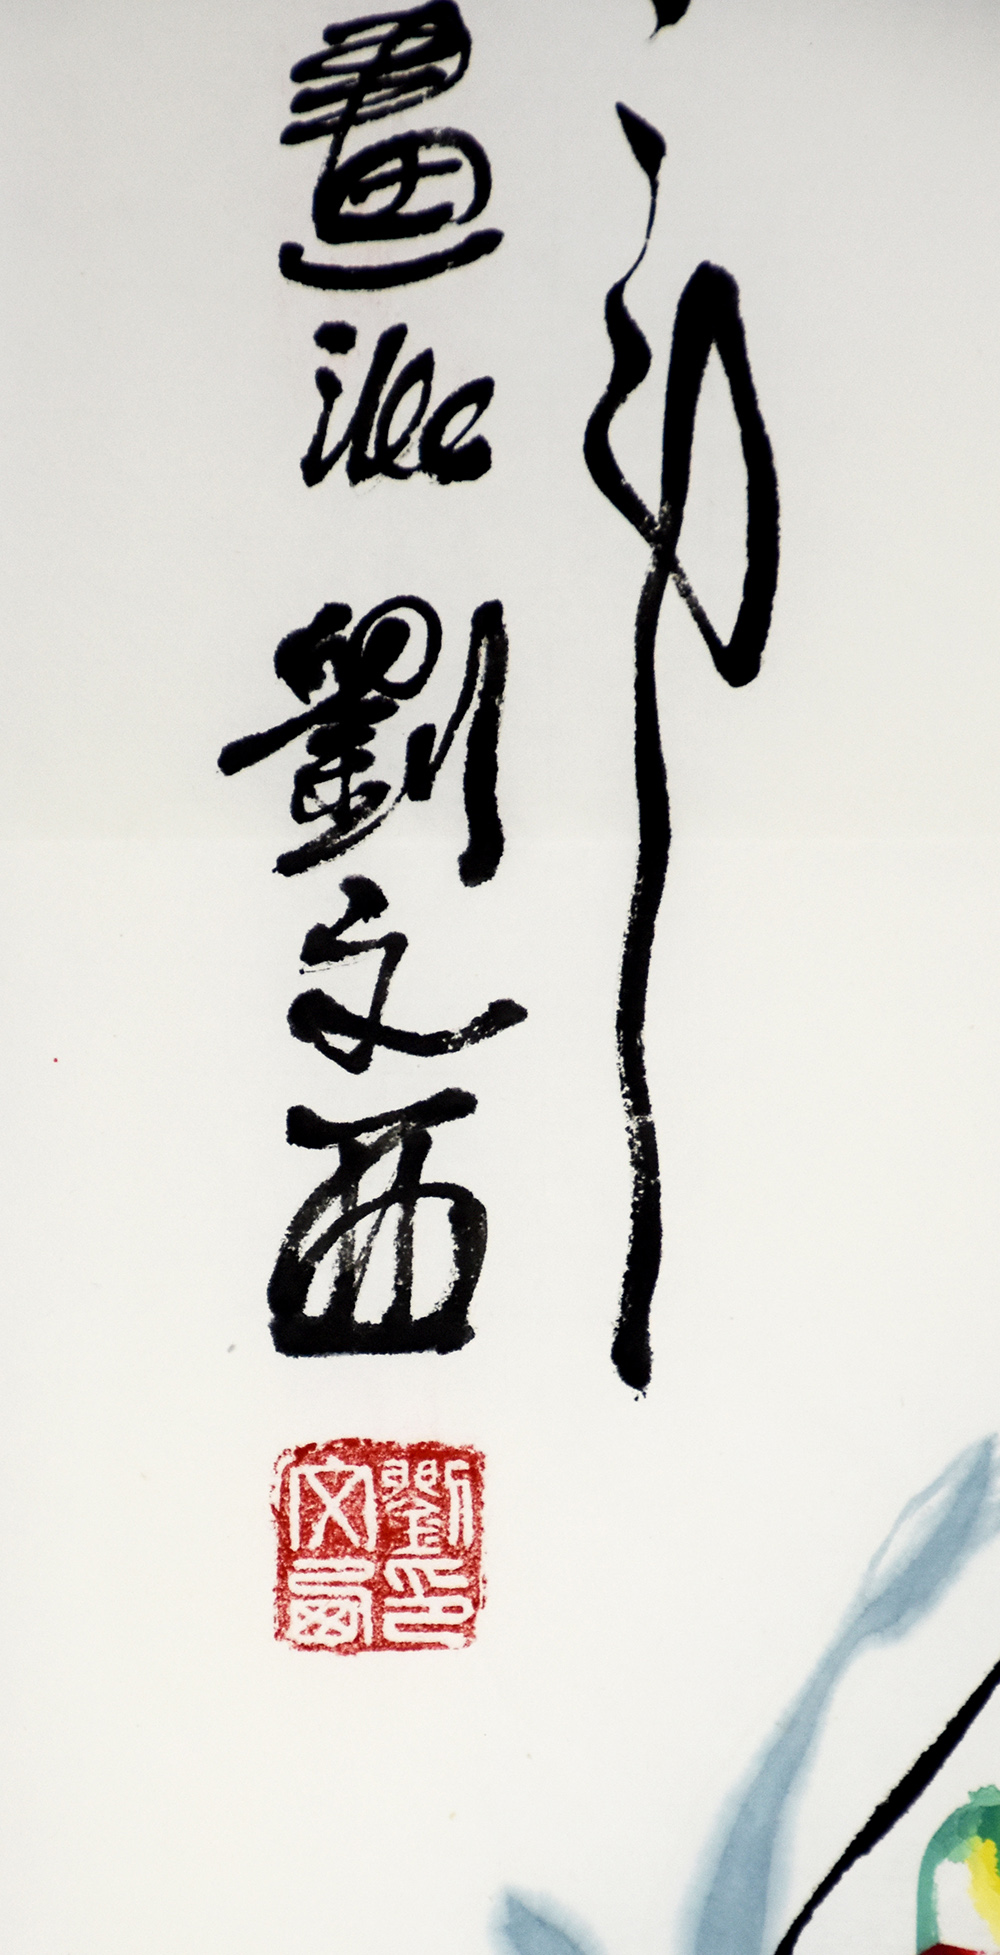 畫派 劉文西
劉印
文西